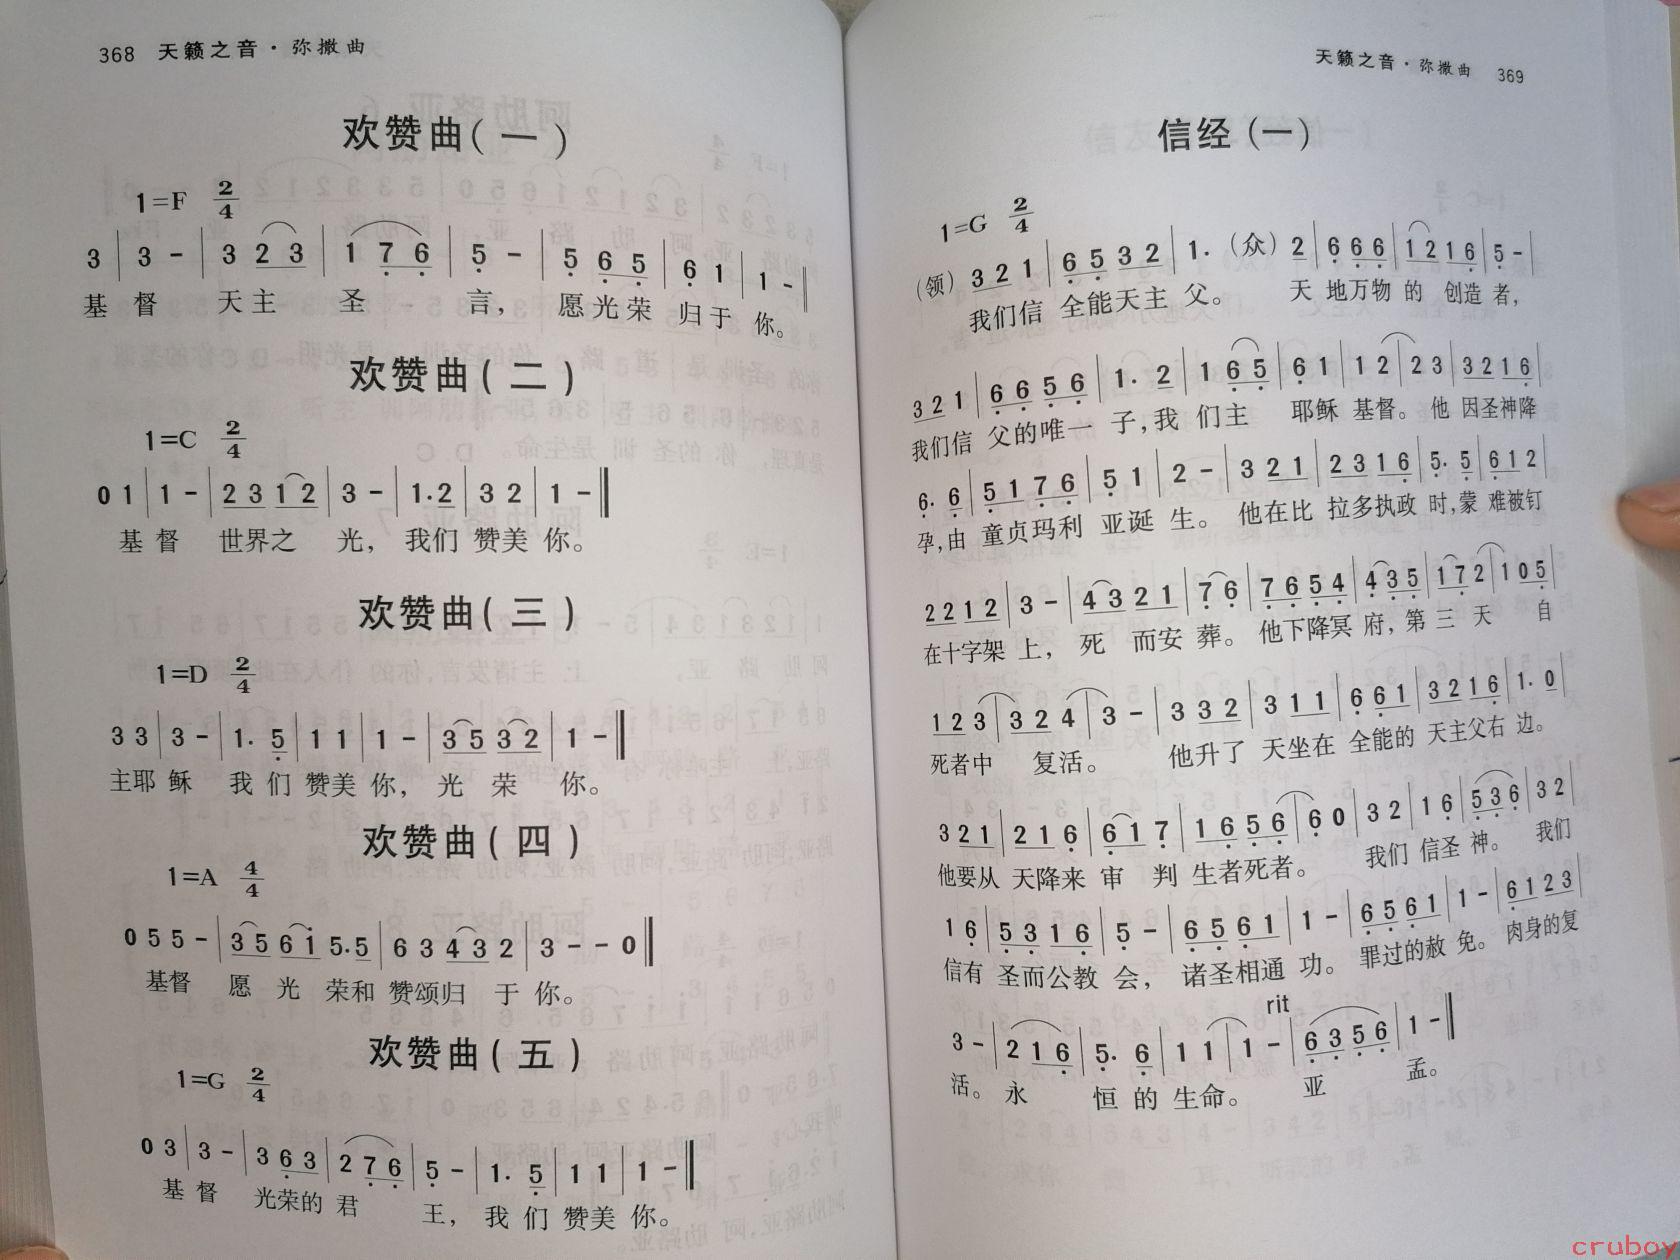 368 天籁之音·弥撒曲
欢赞曲(一)
1=F 2/4
3 | 3 - | 3 2 3 | 1 7 6 | 5 - | 5 6 5 | 6 1 | 1 - ‖
基 督 天主 圣 言， 愿光荣 归于 你。
欢赞曲(二)
1=C 2/4
0 1 | 1 - | 2 3 1 2 | 3 - | 1·2 | 3 2 | 1 - ‖
基 督 世界之 光， 我们 赞美 你。
欢赞曲(三)
1=D 2/4
3 3 | 3 - | 1· 5 | 1 1 | 1 - | 3 5 3 2 | 1 - ‖
主耶 稣 我 们 赞美 你， 光 荣 你。
欢赞曲(四)
1=A 4/4
0 5 5 - | 3 5 6 1 5·5 | 6 3 4 3 2 | 3 - - 0 ‖
基督 愿 光 荣和 赞颂归 于 你。
欢赞曲(五)
1=G 2/4
0 3 | 3 - | 3 6 3 | 2 7 6 | 5 - | 1· 5 | 1 1 | 1 - ‖
基 督 光荣的 君 王， 我 们 赞美 你。
天籁之音·弥撒曲 369
信经(一)
1=G 2/4
(领) 3 2 1 | 6 5 3 2 | 1· (众) 2 | 6 6 6 | 1 2 1 6 | 5 - |
我们信 全能天主 父。 天 地万物 的 创造 者，
3 2 1 | 6 6 5 6 | 1· 2 | 1 6 5 | 6 1 | 1 2 | 2 3 | 3 2 1 6 |
我们信 父的唯一 子，我 们主 耶稣 基督。 他 因圣神降
6· 6 | 5 1 7 6 | 5 1 | 2 - | 3 2 1 | 2 3 1 6 | 5· 5 | 6 1 2 |
孕，由 童贞玛利 亚诞 生。 他在比 拉多执政 时，蒙 难被钉
2 2 1 2 | 3 - | 4 3 2 1 | 7 6 | 7 6 5 4 | 4 3 5 | 1 7 2 | 1 0 5 |
在十字架 上， 死 而安 葬。 他下降冥 府，第 三 天 自
1 2 3 | 3 2 4 | 3 - | 3 3 2 | 3 1 1 | 6 6 1 | 3 2 1 6 | 1· 0 |
死者中 复活。 他升了 天坐在 全能的 天主父右 边。
3 2 1 | 2 1 6 | 6 1 7 | 1 6 5 6 | 6 0 | 3 2 | 1 6 | 5 3 6 | 3 2 |
他要从 天降来 审 判 生者死者。 我们 信圣 神。 我们
1 6 | 5 3 1 6 | 5 - | 6 5 6 1 | 1 - | 6 5 6 1 | 1 - | 6 1 2 3 |
信有 圣而公教 会， 诸圣相通 功。 罪过的赦 免。 肉身的复
rit
3 - | 2 1 6 | 5· 6 | 1 1 | 1 - | 6 3 5 6 | 1 - ‖
活。 永 恒 的 生命。 亚 孟。
cruboy